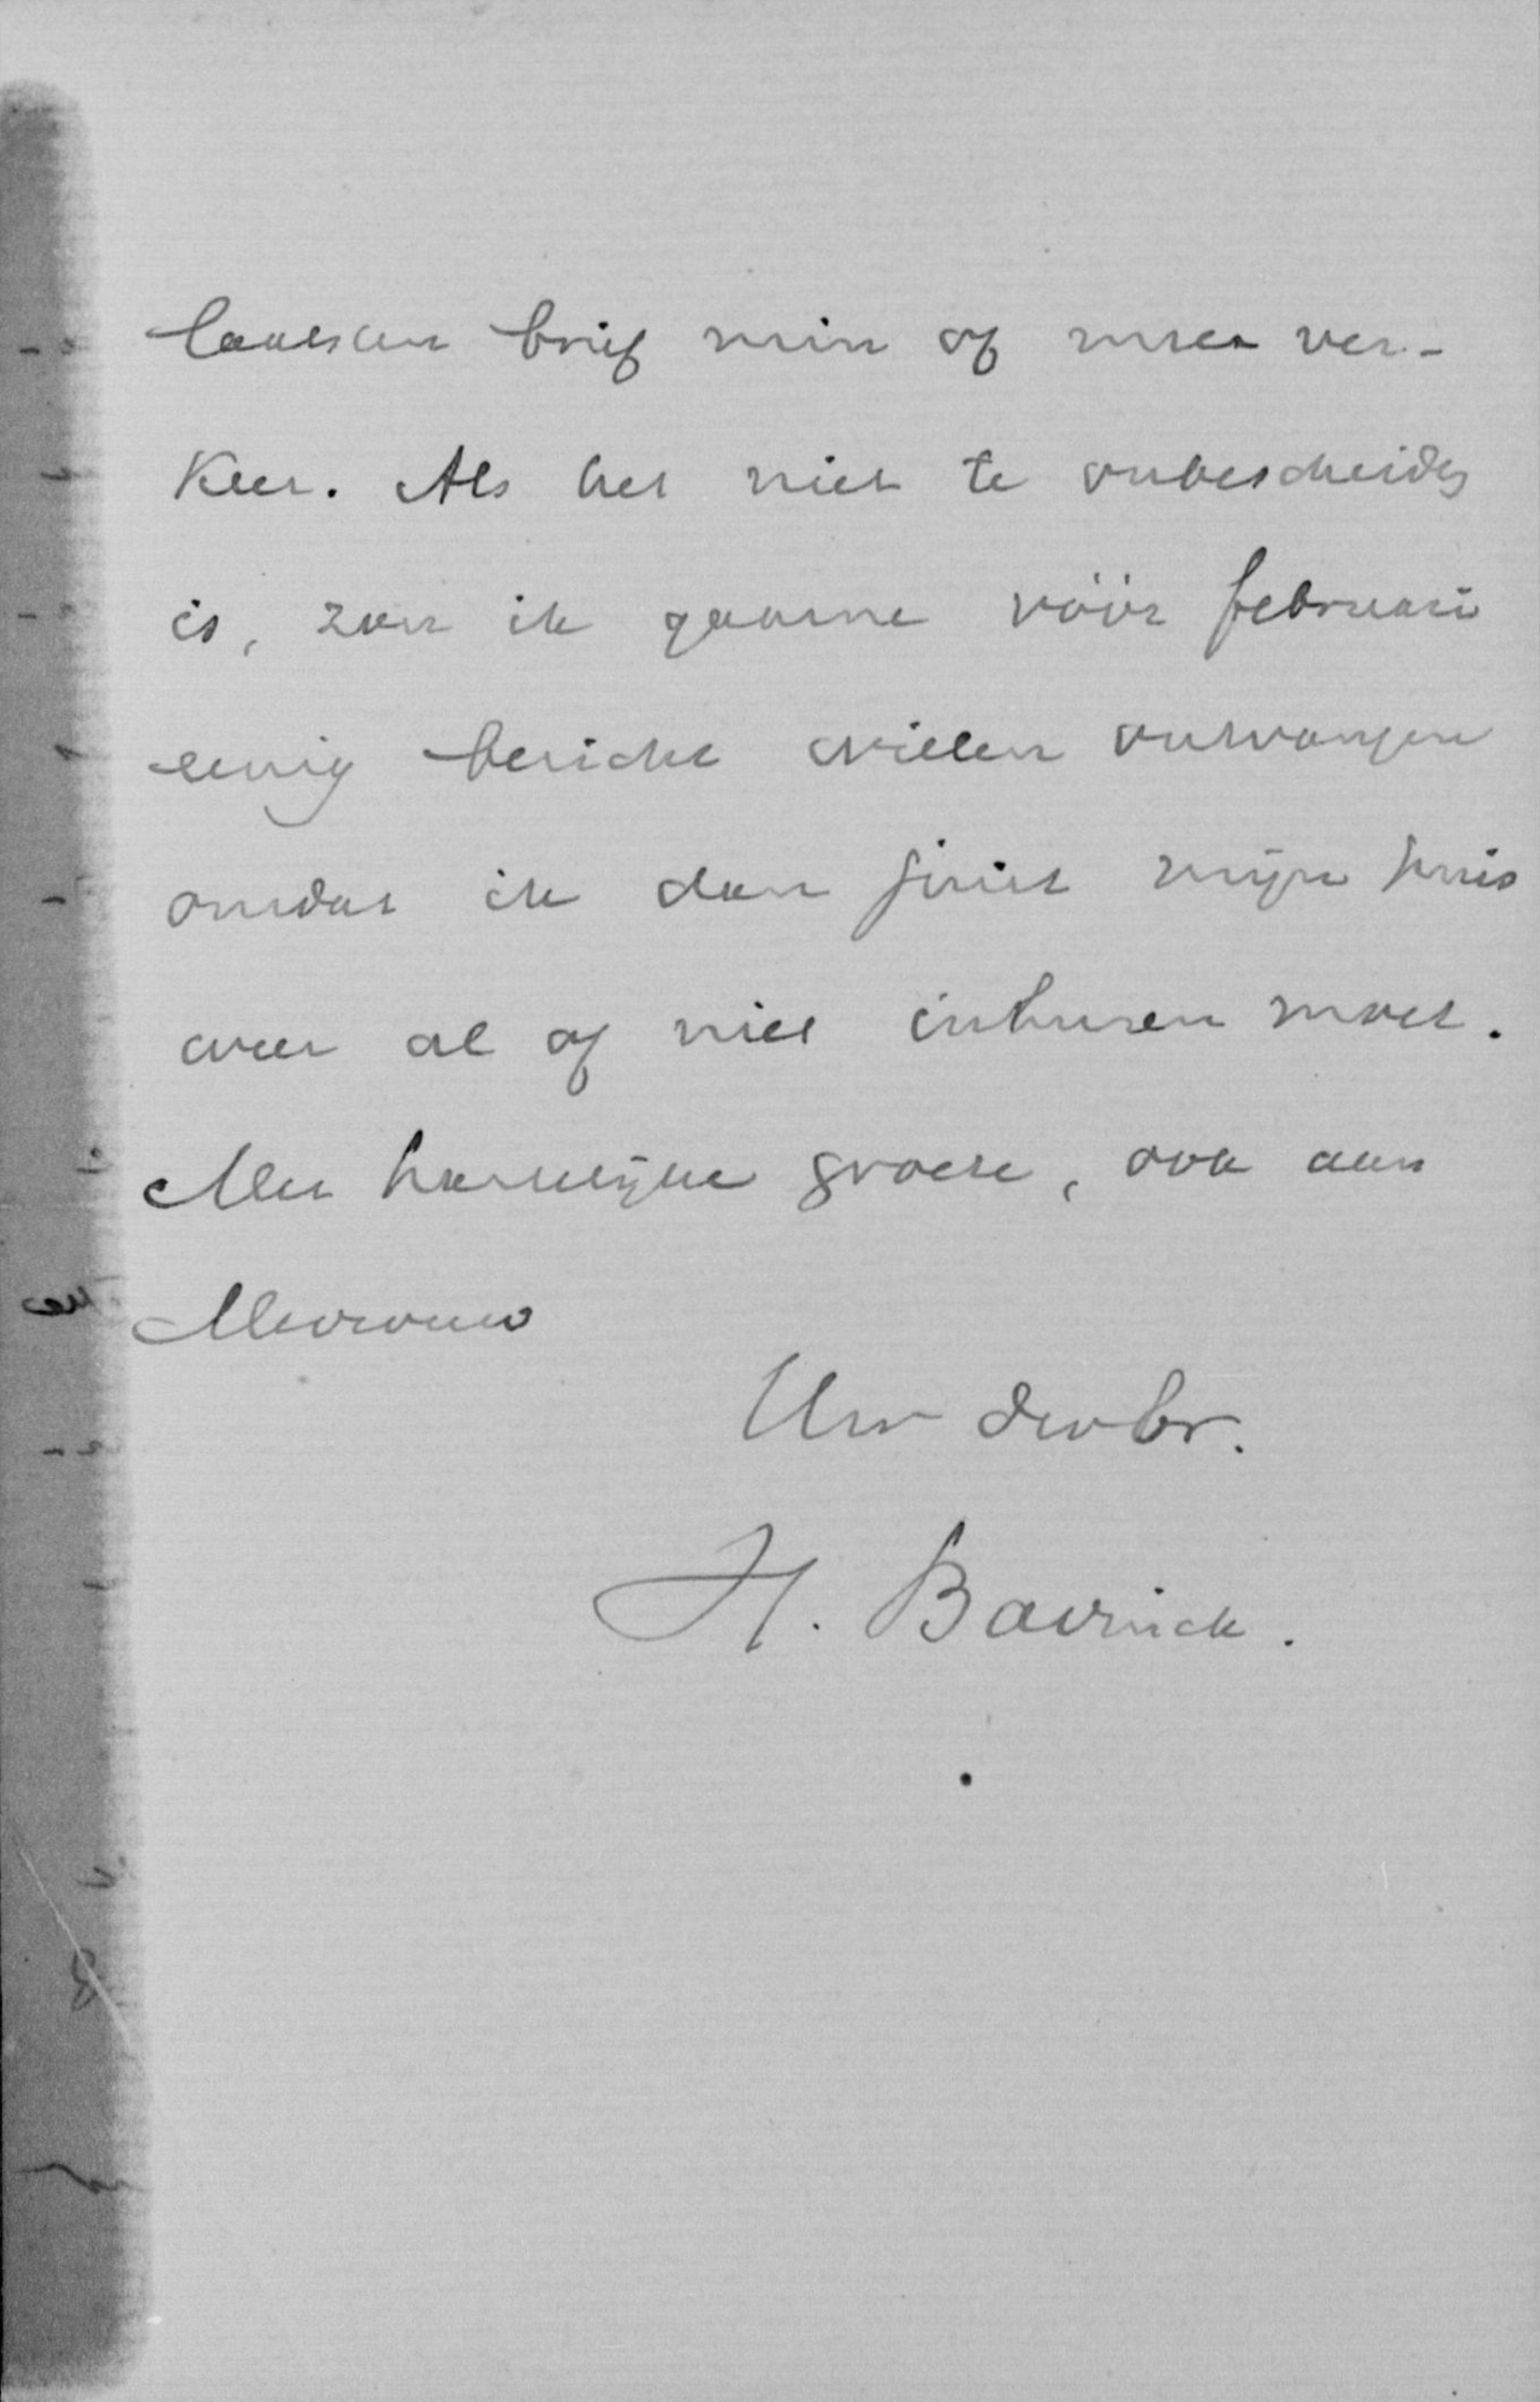 laatsten brief min of meer ver-
keer. Als het niet te onbescheiden
is, zou ik gaarne vóór februari
eenig bericht willen ontvangen
omdat ik dan juist mijn huis
weer al of niet inhuren moet.
Met hartelijke groete, ook aan
Mevrouw
Uw dw br.
H. Bavinck.